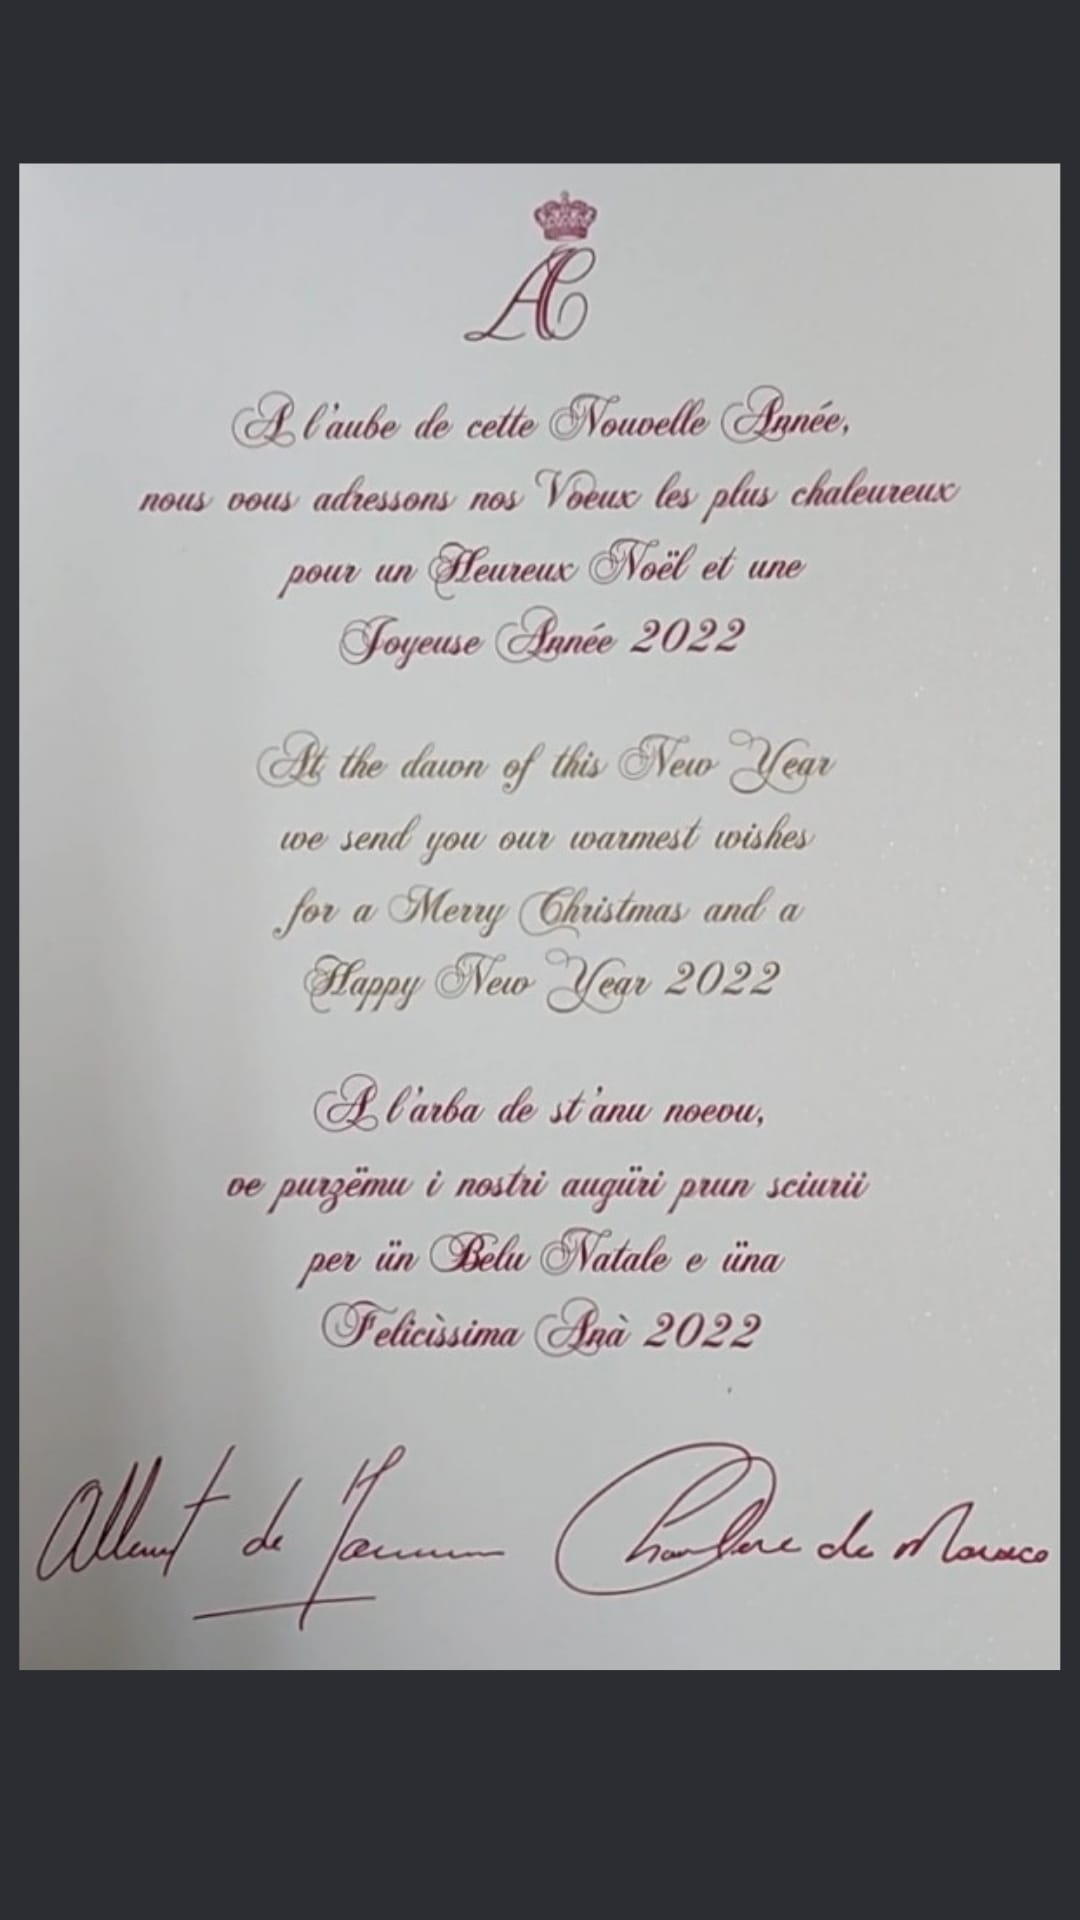 AC
A l'aube de cette Nouvelle Année,
nous vous adressons nos Voeux les plus chaleureux
pour un Heureux Noël et une
Joyeuse Année 2022
At the dawn of this New Year
we send you our warmest wishes
for a Merry Christmas and a
Happy New Year 2022
A l'arba de st'anu noevu,
ve purzëmu i nostri augüri prun sciurii
per ün Belu Natale e üna
Felicìssima Anà 2022
Albert de Monaco Charlène de Monaco